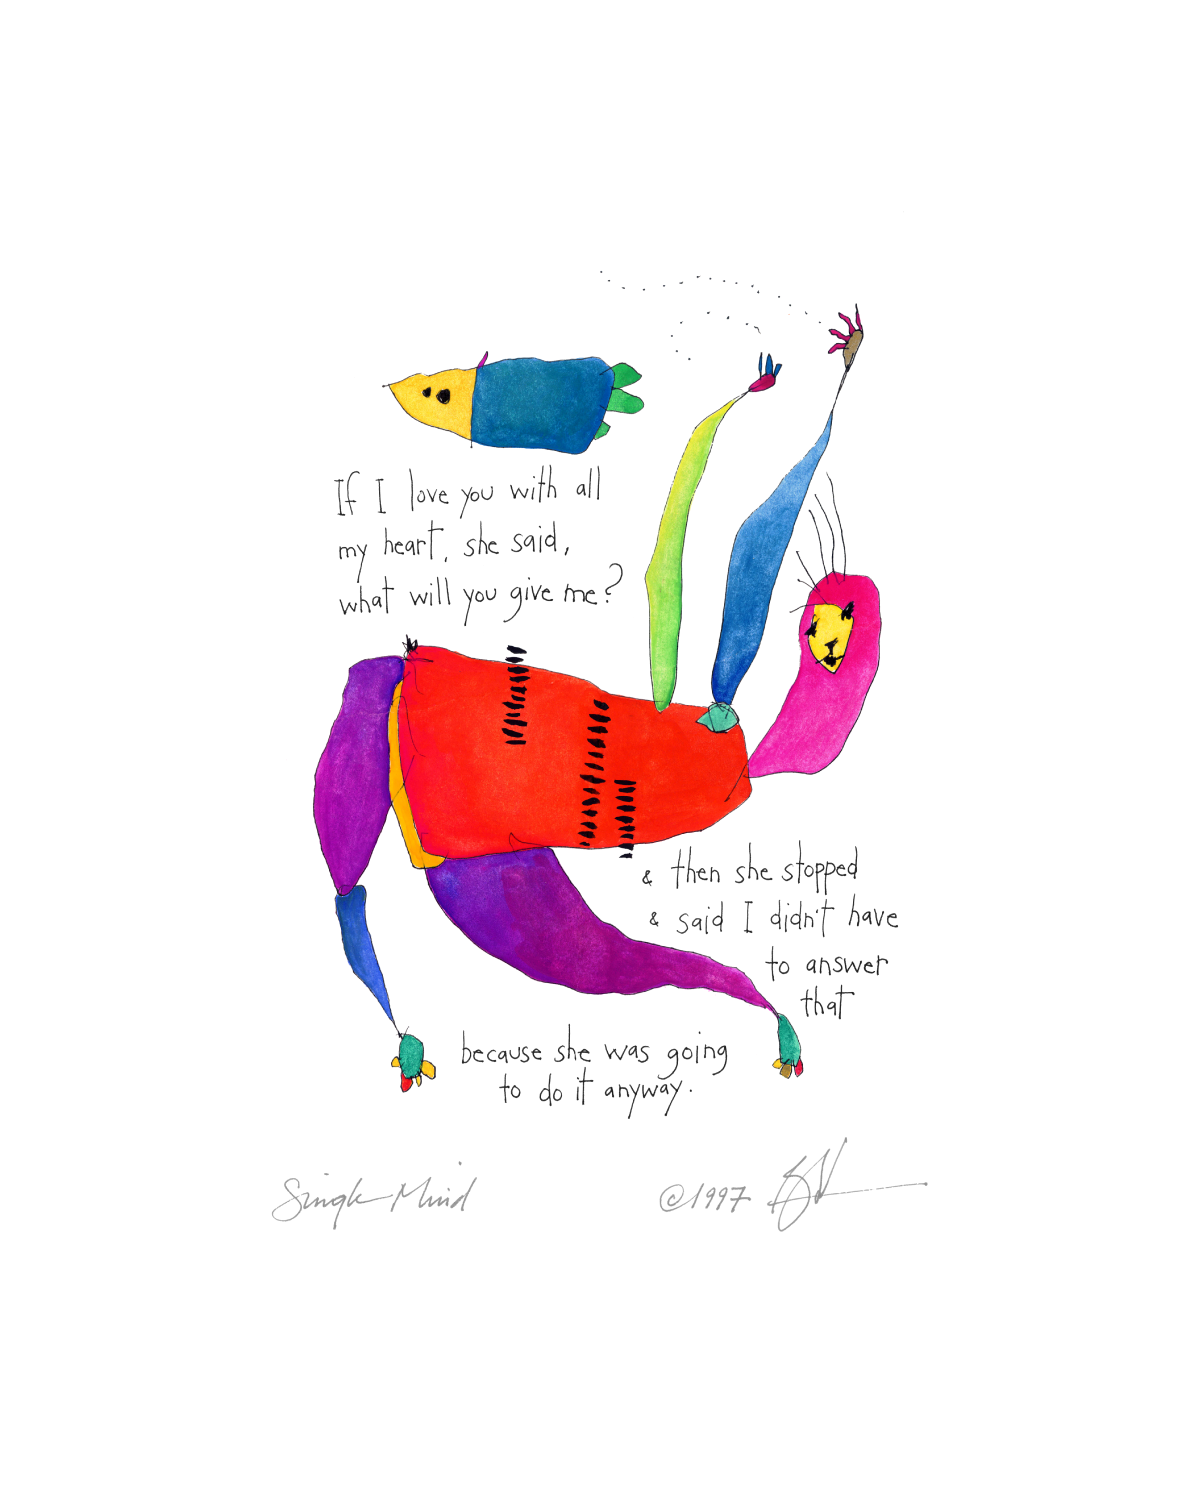 If I love you with all
my heart, she said,
what will you give me?
& then she stopped
& said I didn't have
to answer
that
because she was going
to do it anyway.
Single Mind
©1997